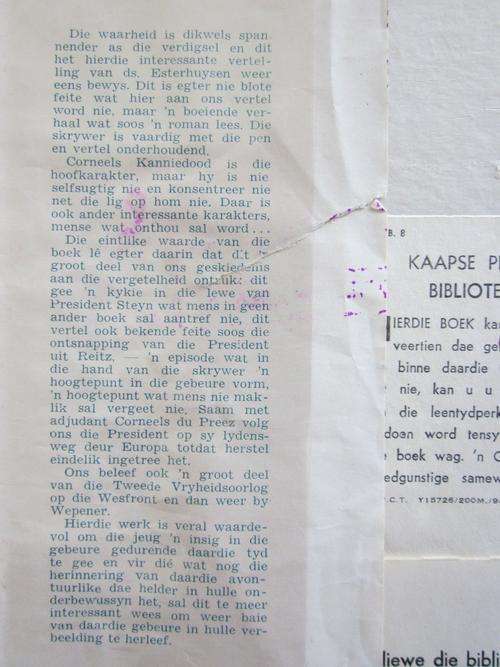 Die waarheid is dikwels span-
nender as die verdigsel en dit
het hierdie interessante vertel-
ling van ds. Esterhuysen weer
eens bewys. Dit is egter nie blote
feite wat hier aan ons vertel
word nie, maar 'n boeiende ver-
haal wat soos 'n roman lees. Die
skrywer is vaardig met die pen
en vertel onderhoudend.
Corneels Kanniedood is die
hoofkarakter, maar hy is nie
selfsugtig nie en konsentreer nie
net die lig op hom nie. Daar is
ook ander interessante karakters,
mense wat onthou sal word...
Die eintlike waarde van die
boek lê egter daarin dat dit 'n
groot deel van ons geskiedenis
aan die vergetelheid ontruk: dit
gee 'n kykie in die lewe van
President Steyn wat mens in geen
ander boek sal aantref nie, dit
vertel ook bekende feite soos die
ontsnapping van die President
uit Reitz, — 'n episode wat in
die hand van die skrywer 'n
hoogtepunt in die gebeure vorm,
'n hoogtepunt wat mens nie mak-
lik sal vergeet nie. Saam met
adjudant Corneels du Preez volg
ons die President op sy lydens-
weg deur Europa totdat herstel
eindelik ingetree het.
Ons beleef ook 'n groot deel
van die Tweede Vryheidsoorlog
op die Wesfront en dan weer by
Wepener.
Hierdie werk is veral waarde-
vol om die jeug 'n insig in die
gebeure gedurende daardie tyd
te gee en vir dié wat nog die
herinnering van daardie avon-
tuurlike dae helder in hulle on-
derbewussyn het, sal dit te meer
interessant wees om weer baie
van daardie gebeure in hulle ver-
beelding te herleef.
B. 8
KAAPSE P
BIBLIOTE
IERDIE BOEK ka
veertien dae gel
binne daardie
nie, kan u u
die leentydperk
doan word tensy
boek wag. 'n
edgunstige samew
C.T. Y15726/200M./9
liewe die bibli